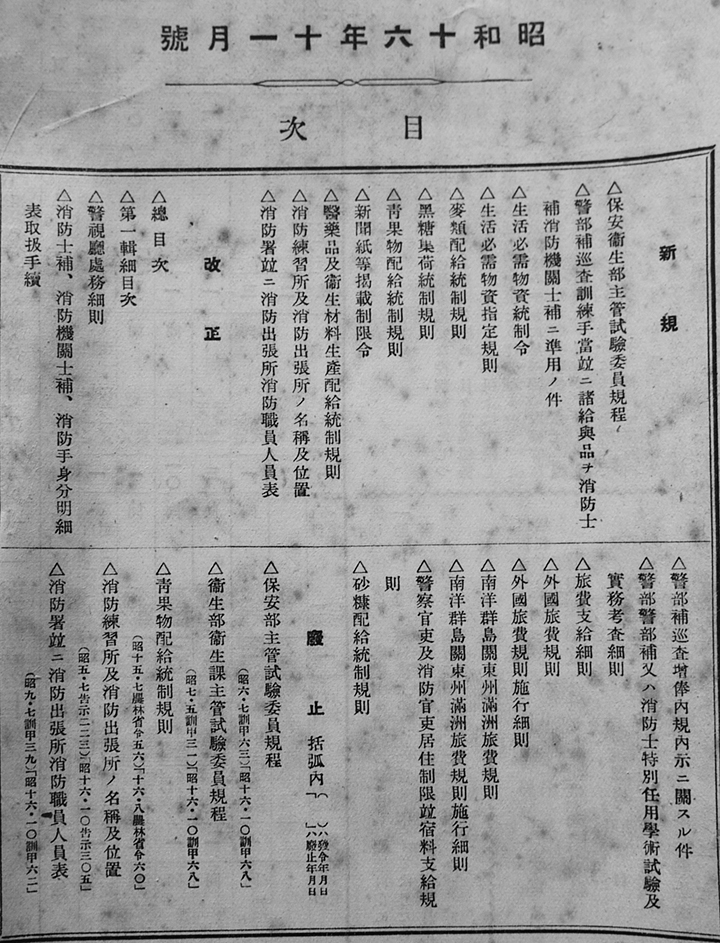 號月一十年六十和昭
次目
新規
△保安衞生部主管試驗委員規程
△警部補巡査訓練手當竝ニ諸給與品ヲ消防士
補消防機關士補ニ準用ノ件
△生活必需物資統制令
△生活必需物資指定規則
△麥類配給統制規則
△黑糖集荷統制規則
△靑果物配給統制規則
△新聞紙等掲載制限令
△醫藥品及衞生材料生產配給統制規則
△消防練習所及消防出張所ノ名稱及位置
△消防署竝ニ消防出張所消防職員人員表
改正
△總目次
△第一輯細目次
△警視廳處務細則
△消防士補、消防機關士補、消防手身分明細
表取扱手續
△警部補巡査增俸內規內示ニ關スル件
△警部警部補又ハ消防士特別任用學術試驗及
實務考査細則
△旅費支給細則
△外國旅費規則
△外國旅費規則施行細則
△南洋群島關東州滿洲旅費規則
△南洋群島關東州滿洲旅費規則施行細則
△警察官吏及消防官吏居住制限竝宿料支給規
則
△砂糖配給統制規則
廢止 括弧內「( )ハ發令年月日 「 」ハ廢止年月日
△保安部主管試驗委員規程
(昭六・七訓甲六三)「昭十六・一〇訓甲六八」
△衞生部衞生課主管試驗委員規程
(昭七・五訓甲三一)「昭十六・一〇訓甲六八」
△靑果物配給統制規則
(昭十五・七農林省令五六)「十六・八農林省令六〇」
△消防練習所及消防出張所ノ名稱及位置
(昭五・七告示二二三)「昭十六・一〇告示三〇五」
△消防署竝ニ消防出張所消防職員人員表
(昭九・七訓甲三九)「昭十六・一〇訓甲六二」